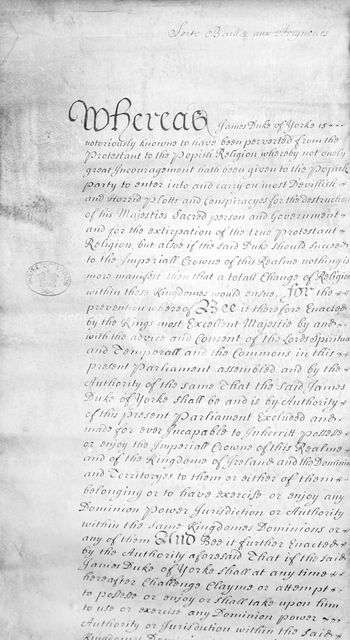 Soit Baillé aux Seigneurs
Whereas James Duke of Yorke is
notoriously knowne to have been perverted from the
Protestant to the Popish Religion whereby not onely
great Incouragement hath been given to the Popish
party to enter into and carry on most Devillish
and Horrid Plotts and Conspiracyes for the destruction
of his Majesties Sacred person and Government
and for the extirpation of the true Protestant
Religion, but alsoe if the said Duke should Succeed
to the Imperiall Crowne of this Realme nothing is
more manifest then that a totall Change of Religion
within these Kingdomes would ensue. For the
prevention whereof Bee it therefore Enacted
by the Kings most Excellent Majestie by and
with the advice and Consent of the Lords Spirituall
and Temporall and the Commons in this
present Parliament assembled and by the
Authority of the same That the said James
Duke of Yorke shall be and is by Authority
of this present Parliament Excluded and
made for ever Incapable to Inherritt possesse
or enjoy the Imperiall Crowne of this Realme
and of the Kingdome of Ireland and the Dominions
and Territoryes to them or either of them
belonging or to have exercise or enjoy any
Dominion Power Jurisdiction or Authority
within the same Kingdomes Dominions or
any of them And Bee it further Enacted
by the Authority aforesaid That if the said
James Duke of Yorke shall at any time
hereafter Challenge Clayme or attempt
to possesse or enjoy or shall take upon him
to use or exercise any Dominion power
Authority or Jurisdiction within the said
Kingdomes